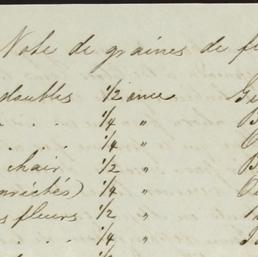 Note de graines de fl
doubles 1/2 once Gi
. . . 1/4 "
. . . 1/4 "
chair 1/2 "
variétés) 1/4 "
s fleurs 1/2 "
. . . . 1/4 "